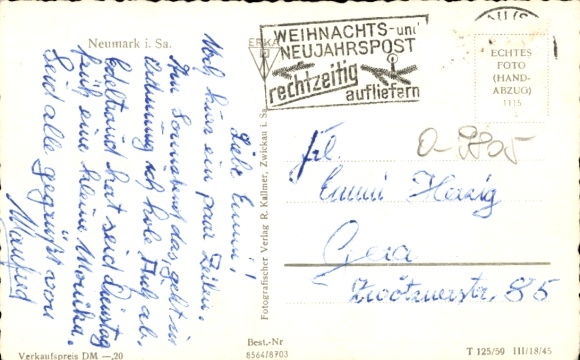 Neumark i. Sa.
WEIHNACHTS- und
NEUJAHRSPOST
rechtzeitig
aufliefern
ECHTES
FOTO
(HAND-
ABZUG)
1115
Liebe Emmi!
Noch kurz ein paar Zeilen.
Am Sonnabend das geht in
Ordnung ich hole Euch ab.
Edeltraud hat seid Dienstag
früh eine kleine Monika.
Seid alle gegrüßt von
Manfred
Frl.
Emmi Herzig
Gera
Zwötznerstr. 85
Fotografischer Verlag R. Kallmer, Zwickau i. Sa.
Best.-Nr
8564/8703
Verkaufspreis DM —,20
T 125/59 III/18/45